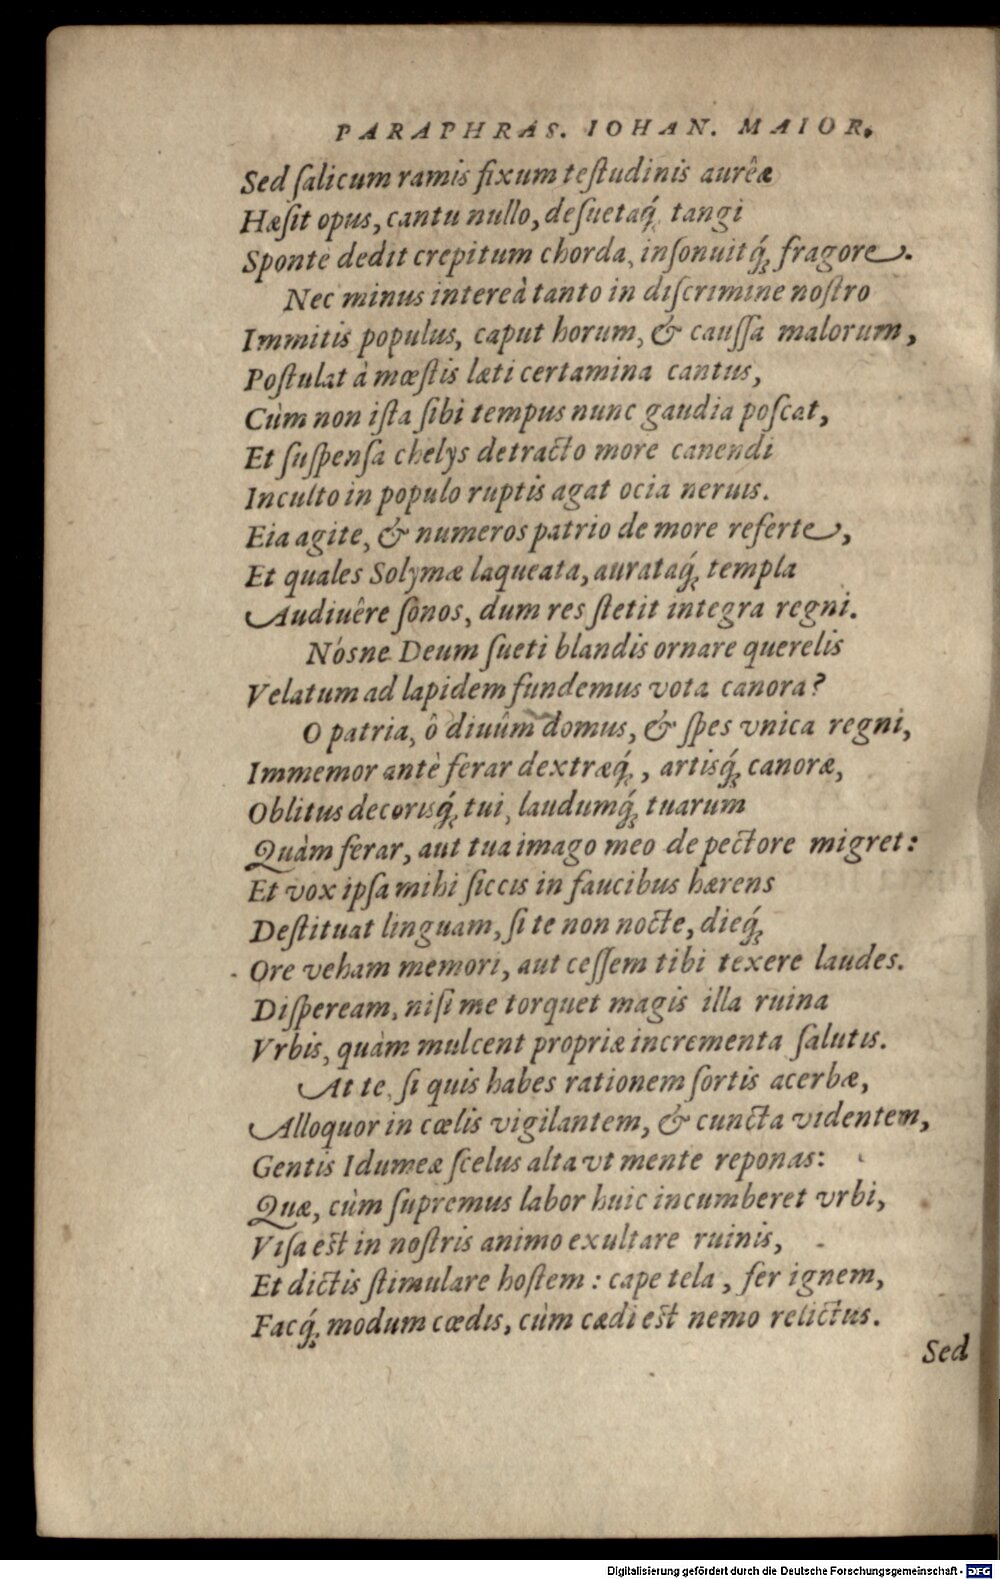 PARAPHRAS. IOHAN. MAIOR.
Sed ſalicum ramis fixum teſtudinis aurêæ
Hæſit opus, cantu nullo, deſuetaq́ꝫ tangi
Sponte dedit crepitum chorda, inſonuitq́ꝫ fragore.
Nec minus intereà tanto in diſcrimine noſtro
Immitis populus, caput horum, & cauſſa malorum,
Poſtulat à mœſtis læti certamina cantus,
Cùm non iſta ſibi tempus nunc gaudia poſcat,
Et ſuſpenſa chelys detracto more canendi
Inculto in populo ruptis agat ocia neruis.
Eia agite, & numeros patrio de more referte,
Et quales Solymæ laqueata, aurataq́ꝫ templa
Audiuêre ſonos, dum res ſtetit integra regni.
Nósne Deum ſueti blandis ornare querelis
Velatum ad lapidem fundemus vota canora?
O patria, ô diuûm domus, & ſpes vnica regni,
Immemor antè ferar dextræq́ꝫ, artisq́ꝫ canoræ,
Oblitus decorisq́ꝫ tui, laudumq́ꝫ tuarum
Quàm ferar, aut tua imago meo de pectore migret:
Et vox ipſa mihi ſiccis in faucibus hærens
Deſtituat linguam, ſi te non nocte, dieq́ꝫ
Ore veham memori, aut ceſſem tibi texere laudes.
Diſpeream, niſi me torquet magis illa ruina
Vrbis, quàm mulcent propriæ incrementa ſalutis.
At te, ſi quis habes rationem ſortis acerbæ,
Alloquor in cœlis vigilantem, & cuncta videntem,
Gentis Idumeæ ſcelus alta vt mente reponas:
Quæ, cùm ſupremus labor huic incumberet vrbi,
Viſa est in noſtris animo exultare ruinis,
Et dictis ſtimulare hoſtem: cape tela, fer ignem,
Facq́ꝫ modum cœdis, cùm cædi est nemo relictus.
Sed
Digitalisierung gefördert durch die Deutsche Forschungsgemeinschaft - DFG